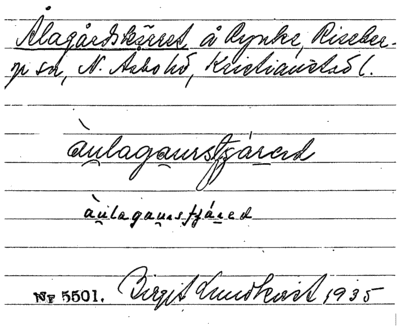 Ålagårdskärret å Rynke, Riseber-
ga sn, N. Åsbo hd, Kristianstad l.
àulagaursţjáred
àulagaursţjáred
Nr 5501. Birgit Lundkvist 1935